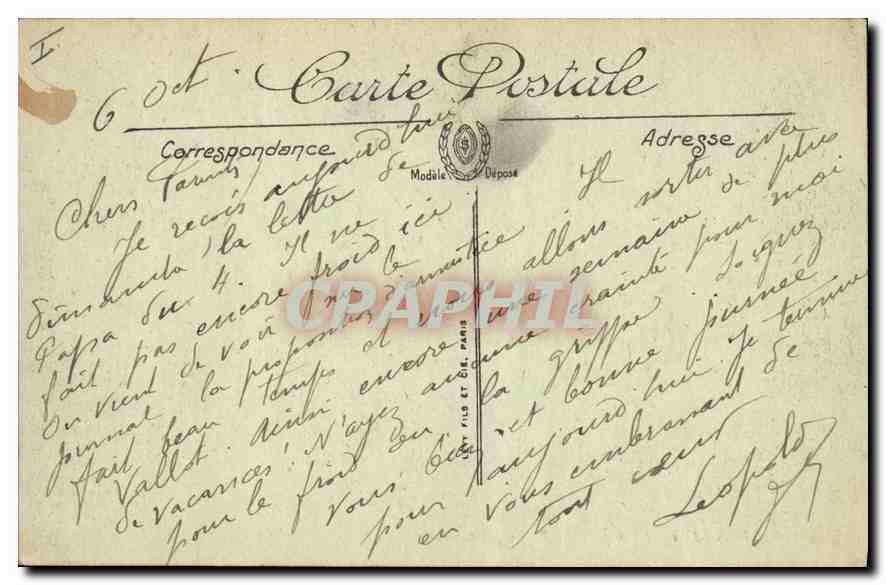 I
6 Oct.
Carte Postale
Correspondance
Adresse
Modèle Déposé
LEVY FILS ET CIE, PARIS
Chers
Je reçois aujourd'hui
dimanche la lettre de
Papa du 4. Il ne
fait pas encore froid ici
On vient de voir sur le
journal la proposition d'armistice Il
fait beau temps et nous allons sortir avec
Vallot. Ainsi encore une semaine de plus
de vacances! N'ayez aucune crainte pour moi
pour le froid ou la grippe. Soignez
vous bien et bonne journée
pour aujourd'hui. Je termine
en vous embrassant de
tout cœur
Leopold
CPAPHIL